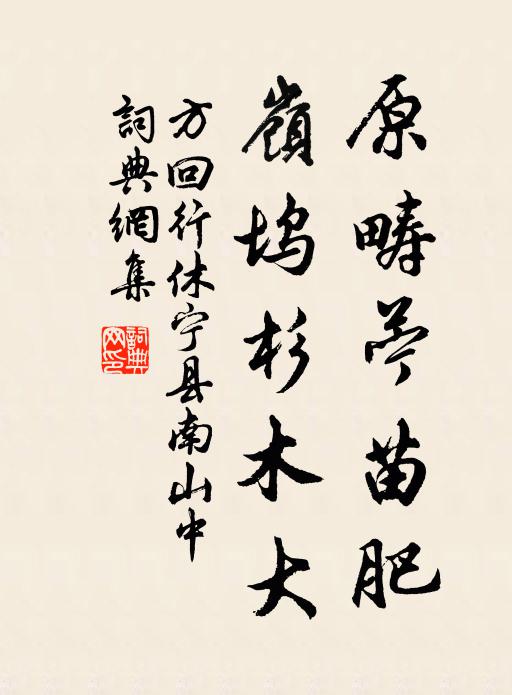 原疇苎苗肥
嶺坞杉木大
方回行休宁县南山中
詞典網集
詞典
网印